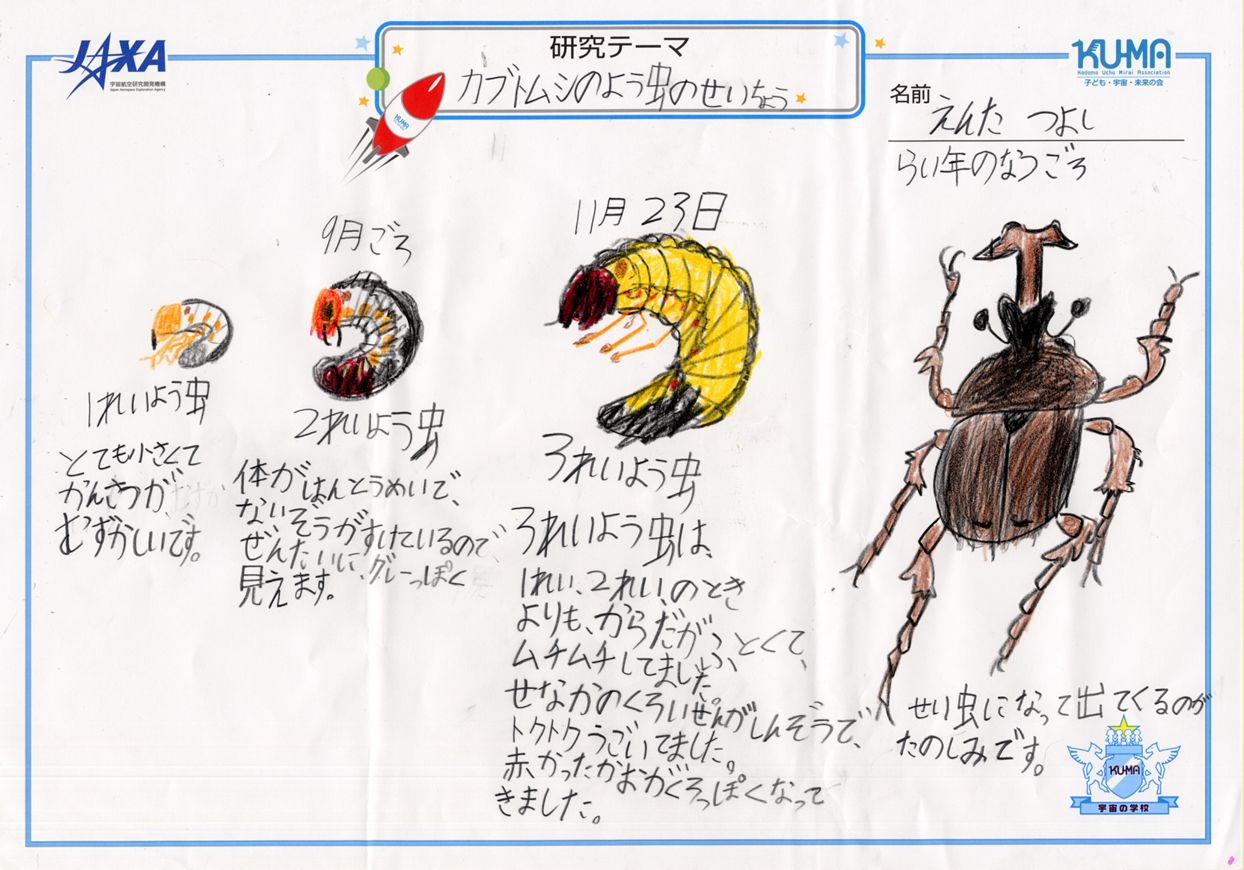 JAXA
宇宙航空研究開発機構
Japan Aerospace Exploration Agency
研究テーマ
カブトムシのよう虫のせいちょう
KUMA
KUMA
Kodomo Uchu Mirai Association
子ども・宇宙・未来の会
名前
えんた つよし
らい年のなつごろ
9月ごろ
11月23日
1れいよう虫
とても小さくて
かんさつが、
むずかしいです。
2れいよう虫
体がはんとうめいで、
ないぞうがすけているので
ぜんたいに、グレーっぽく
見えます。
3れいよう虫
3れいよう虫は、
1れい、2れい、のとき
よりも、からだがふとくて、
ムチムチしてました。
せなかのくろいせんがしんぞうで、
トクトクうごいてました。
赤かったかおがくろっぽくなって
きました。
せい虫になって出てくるのが
たのしみです。
KUMA
宇宙の学校